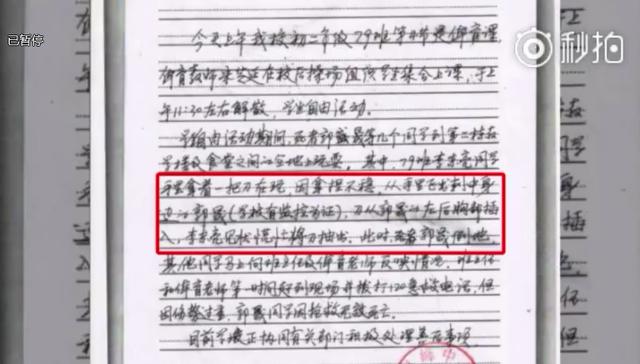 已暂停
秒拍
今天上午我校初二年级79班第4节是体育课,
体育教师 在校后操场组织学生集合上课,于上
午11:30左右解散,学生自由活动。
学生自由活动期间,死者郭晟 等几个同学到第二栋教
学楼及食堂之间空地上玩耍。其中,79班李东亮同学
手里拿着一把刀在玩,因拿捏不稳,从手里飞出刺中身
边 郭晟(学校有监控为证),刀从郭晟 左后胸部插
入,李东亮见状慌忙将刀抽出。此时,死者郭晟倒地,
其他同学马上向班主任及体育老师反映情况,班主任
和体育老师第一时间赶到现场并拨打120急救电话,但
因伤势过重,郭晟同学因抢救无效死亡。
目前学校正协同有关部门积极处理善后事项。